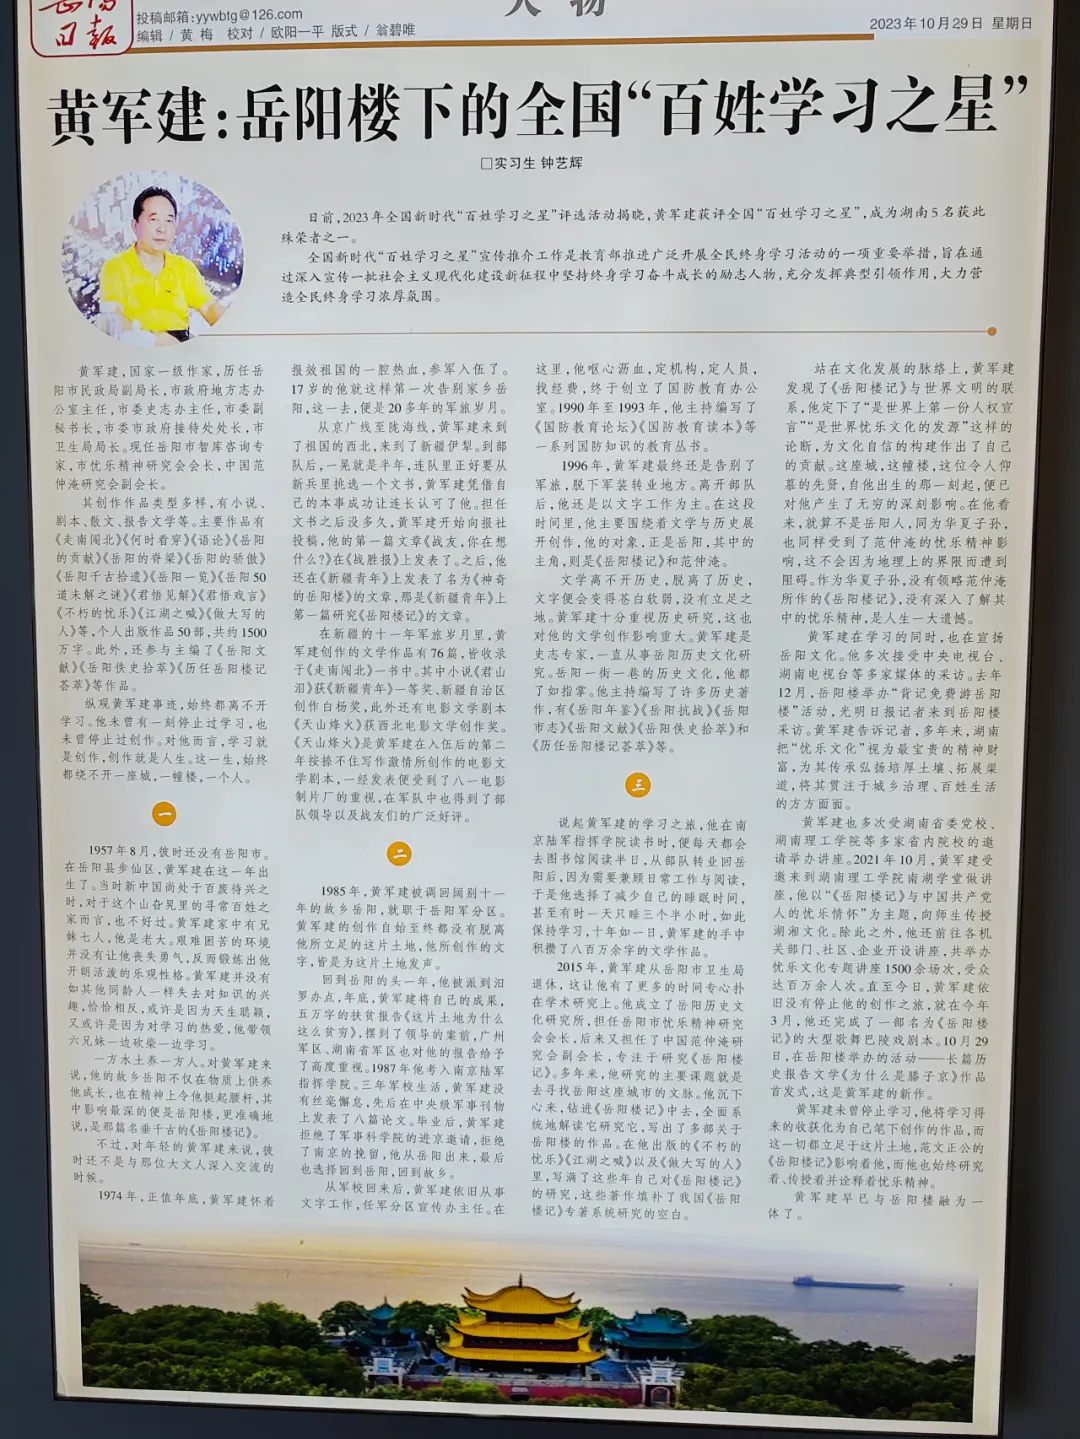 岳阳
日报
投稿邮箱:yywbtg@126.com
编辑 / 黄 梅　校对 / 欧阳一平 版式 / 翁碧唯
人 物
2023年10月29日 星期日
黄军建:岳阳楼下的全国“百姓学习之星”
□实习生 钟艺辉
日前,2023年全国新时代“百姓学习之星”评选活动揭晓,黄军建获评全国“百姓学习之星”,成为湖南5名获此
殊荣者之一。
全国新时代“百姓学习之星”宣传推介工作是教育部推进广泛开展全民终身学习活动的一项重要举措,旨在通
过深入宣传一批社会主义现代化建设新征程中坚持终身学习奋斗成长的励志人物,充分发挥典型引领作用,大力营
造全民终身学习浓厚氛围。
黄军建,国家一级作家,历任岳
阳市民政局副局长,市政府地方志办
公室主任,市委史志办主任,市委副
秘书长,市委市政府接待处处长,市
卫生局局长。现任岳阳市智库咨询专
家,市忧乐精神研究会会长,中国范
仲淹研究会副会长。
其创作作品类型多样,有小说、
剧本、散文、报告文学等。主要作品有
《走南闯北》《何时看穿》《语论》《岳阳
的贡献》《岳阳的脊梁》《岳阳的骄傲》
《岳阳千古拾遗》《岳阳一览》《岳阳50
道未解之谜》《君悟见解》《君悟戏言》
《不朽的忧乐》《江湖之喊》《做大写的
人》等,个人出版作品50部,共约1500
万字。此外,还参与主编了《岳阳文
献》《岳阳佚史拾萃》《历任岳阳楼记
荟萃》等作品。
纵观黄军建事迹,始终都离不开
学习。他未曾有一刻停止过学习,也
未曾停止过创作。对他而言,学习就
是创作,创作就是人生。这一生,始终
都绕不开一座城,一幢楼,一个人。
一
1957年8月,彼时还没有岳阳市。
在岳阳县步仙区,黄军建在这一年出
生了。当时新中国尚处于百废待兴之
时,对于这个山旮旯里的寻常百姓之
家而言,也不好过。黄军建家中有兄
妹七人,他是老大。艰难困苦的环境
并没有让他丧失勇气,反而锻炼出他
开朗活泼的乐观性格。黄军建并没有
如其他同龄人一样失去对知识的兴
趣,恰恰相反,或许是因为天生聪颖,
又或许是因为对学习的热爱,他带领
六兄妹一边砍柴一边学习。
一方水土养一方人。对黄军建来
说,他的故乡岳阳不仅在物质上供养
他成长,也在精神上令他挺起腰杆,其
中影响最深的便是岳阳楼,更准确地
说,是那篇名垂千古的《岳阳楼记》。
不过,对年轻的黄军建来说,彼
时还不是与那位大文人深入交流的
时候。
1974年,正值年底,黄军建怀着
报效祖国的一腔热血,参军入伍了。
17岁的他就这样第一次告别家乡岳
阳,这一去,便是20多年的军旅岁月。
从京广线至陇海线,黄军建来到
了祖国的西北,来到了新疆伊犁。到部
队后,一晃就是半年,连队里正好要从
新兵里挑选一个文书,黄军建凭借自
己的本事成功让连长认可了他。担任
文书之后没多久,黄军建开始向报社
投稿,他的第一篇文章《战友,你在想
什么?》在《战胜报》上发表了。之后,他
还在《新疆青年》上发表了名为《神奇
的岳阳楼》的文章,那是《新疆青年》上
第一篇研究《岳阳楼记》的文章。
在新疆的十一年军旅岁月里,黄
军建创作的文学作品有76篇,皆收录
于《走南闯北》一书中。其中小说《君山
泪》获《新疆青年》一等奖、新疆自治区
创作白杨奖,此外还有电影文学剧本
《天山烽火》获西北电影文学创作奖。
《天山烽火》是黄军建在入伍后的第二
年按捺不住写作激情所创作的电影文
学剧本,一经发表便受到了八一电影
制片厂的重视,在军队中也得到了部
队领导以及战友们的广泛好评。
二
1985年,黄军建被调回阔别十一
年的故乡岳阳,就职于岳阳军分区。
黄军建的创作自始至终都没有脱离
他所立足的这片土地,他所创作的文
字,皆是为这片土地发声。
回到岳阳的头一年,他被派到汨
罗办点,年底,黄军建将自己的成果,
五万字的扶贫报告《这片土地为什么
这么贫穷》,摆到了领导的案前,广州
军区、湖南省军区也对他的报告给予
了高度重视。1987年他考入南京陆军
指挥学院。三年军校生活,黄军建没
有丝毫懈怠,先后在中央级军事刊物
上发表了八篇论文。毕业后,黄军建
拒绝了军事科学院的进京邀请,拒绝
了南京的挽留,他从岳阳出来,最后
也选择回到岳阳,回到故乡。
从军校回来后,黄军建依旧从事
文字工作,任军分区宣传办主任。在
这里,他呕心沥血,定机构,定人员,
找经费,终于创立了国防教育办公
室。1990年至1993年,他主持编写了
《国防教育论坛》《国防教育读本》等
一系列国防知识的教育丛书。
1996年,黄军建最终还是告别了
军旅,脱下军装转业地方。离开部队
后,他还是以文字工作为主。在这段
时间里,他主要围绕着文学与历史展
开创作,他的对象,正是岳阳,其中的
主角,则是《岳阳楼记》和范仲淹。
文学离不开历史,脱离了历史,
文字便会变得苍白软弱,没有立足之
地。黄军建十分重视历史研究,这也
对他的文学创作影响重大。黄军建是
史志专家,一直从事岳阳历史文化研
究。岳阳一街一巷的历史文化,他都
了如指掌。他主持编写了许多历史著
作,有《岳阳年鉴》《岳阳抗战》《岳阳
市志》《岳阳文献》《岳阳佚史拾萃》和
《历任岳阳楼记荟萃》等。
三
说起黄军建的学习之旅,他在南
京陆军指挥学院读书时,便每天都会
去图书馆阅读半日,从部队转业回岳
阳后,因为需要兼顾日常工作与阅读,
于是他选择了减少自己的睡眠时间,
甚至有时一天只睡三个半小时,如此
保持学习,十年如一日,黄军建的手中
积攒了八百万余字的文学作品。
2015年,黄军建从岳阳市卫生局
退休,这让他有了更多的时间专心扑
在学术研究上。他成立了岳阳历史文
化研究所,担任岳阳市忧乐精神研究
会会长,后来又担任了中国范仲淹研
究会副会长,专注于研究《岳阳楼
记》。多年来,他研究的主要课题就是
去寻找岳阳这座城市的文脉。他沉下
心来,钻进《岳阳楼记》中去,全面系
统地解读它研究它,写出了多部关于
岳阳楼的作品。在他出版的《不朽的
忧乐》《江湖之喊》以及《做大写的人》
里,写满了这些年自己对《岳阳楼记》
的研究,这些著作填补了我国《岳阳
楼记》专著系统研究的空白。
站在文化发展的脉络上,黄军建
发现了《岳阳楼记》与世界文明的联
系,他定下了“是世界上第一份人权宣
言”“是世界忧乐文化的发源”这样的
论断,为文化自信的构建作出了自己
的贡献。这座城,这幢楼,这位令人仰
慕的先贤,自他出生的那一刻起,便已
对他产生了无穷的深刻影响。在他看
来,就算不是岳阳人,同为华夏子孙,
也同样受到了范仲淹的忧乐精神影
响,这不会因为地理上的界限而遭到
阻碍。作为华夏子孙,没有领略范仲淹
所作的《岳阳楼记》,没有深入了解其
中的忧乐精神,是人生一大遗憾。
黄军建在学习的同时,也在宣扬
岳阳文化。他多次接受中央电视台、
湖南电视台等多家媒体的采访。去年
12月,岳阳楼举办“背记免费游岳阳
楼”活动,光明日报记者来到岳阳楼
采访。黄军建告诉记者,多年来,湖南
把“忧乐文化”视为最宝贵的精神财
富,为其传承弘扬培厚土壤、拓展渠
道,将其贯注于城乡治理、百姓生活
的方方面面。
黄军建也多次受湖南省委党校、
湖南理工学院等多家省内院校的邀
请举办讲座。2021年10月,黄军建受
邀来到湖南理工学院南湖学堂做讲
座,他以“《岳阳楼记》与中国共产党
人的忧乐情怀”为主题,向师生传授
湖湘文化。除此之外,他还前往各机
关部门、社区、企业开设讲座,共举办
忧乐文化专题讲座1500余场次,受众
达百万余人次。直至今日,黄军建依
旧没有停止他的创作之旅,就在今年
3月,他还完成了一部名为《岳阳楼
记》的大型歌舞巴陵戏剧本。10月29
日,在岳阳楼举办的活动——长篇历
史报告文学《为什么是滕子京》作品
首发式,这是黄军建的新作。
黄军建未曾停止学习,他将学习得
来的收获化为自己笔下创作的作品,而
这一切都立足于这片土地,范文正公的
《岳阳楼记》影响着他,而他也始终研究
着、传授着并诠释着忧乐精神。
黄军建早已与岳阳楼融为一
体了。